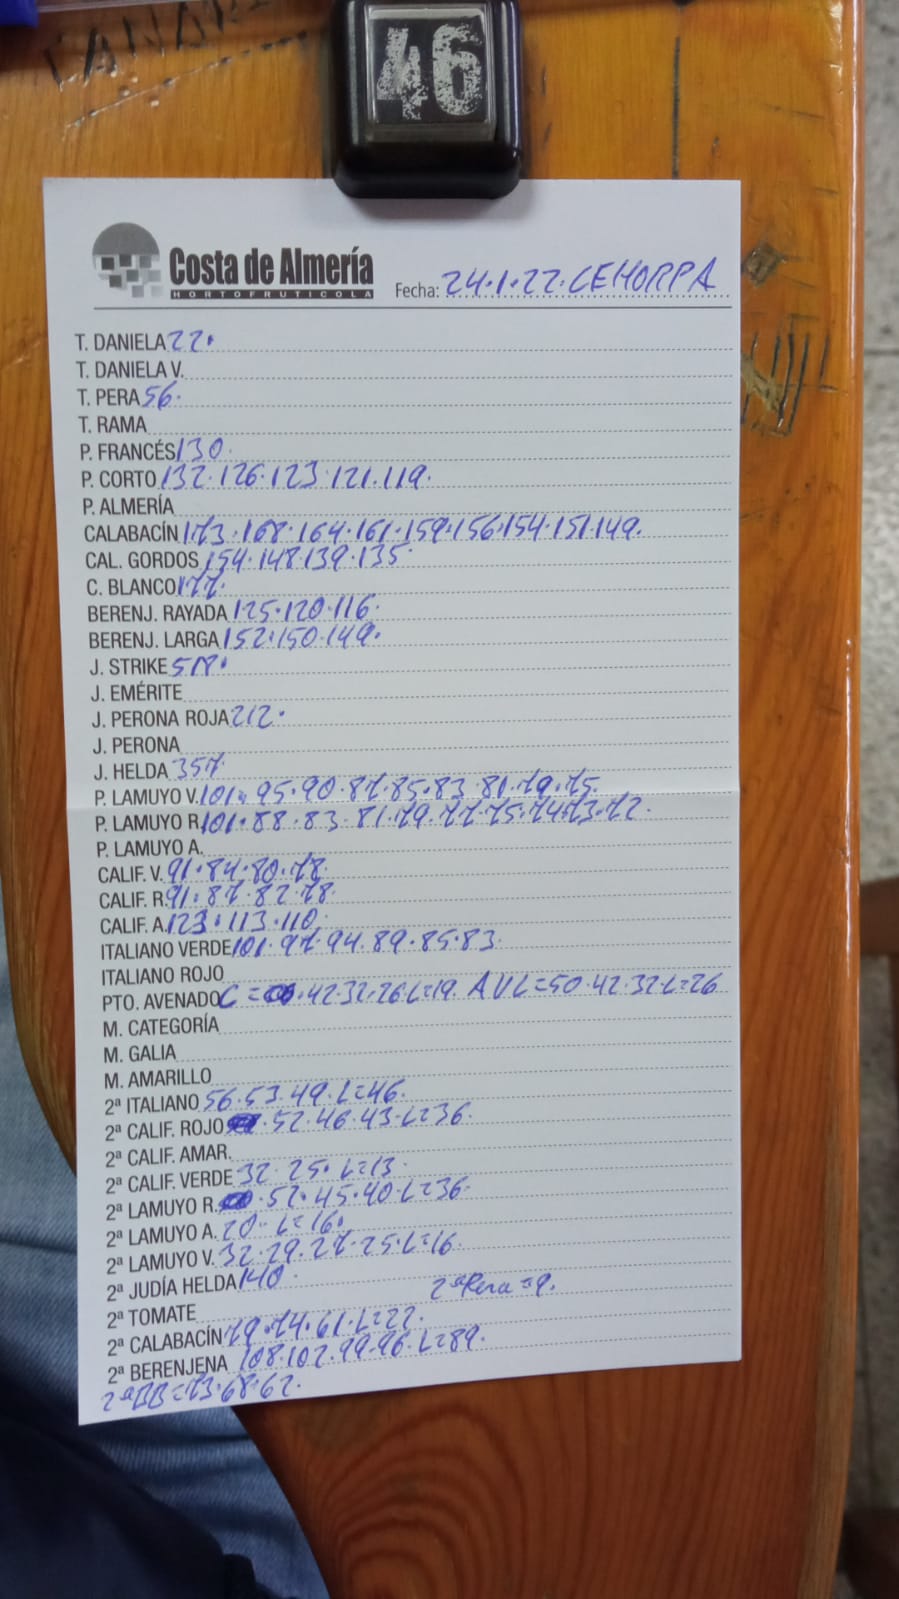 CANAL
46
Costa de Almería
HORTOFRUTICOLA
Fecha: 24.1.22.CEHORPA
T. DANIELA 22.
T. DANIELA V.
T. PERA 56.
T. RAMA
P. FRANCÉS 130.
P. CORTO 132.126.123.121.119.
P. ALMERÍA
CALABACÍN 173.168.164.161.159.156.154.151.149.
CAL. GORDOS 154.148.139.135.
C. BLANCO 177.
BERENJ. RAYADA 125.120.116.
BERENJ. LARGA 152.150.149.
J. STRIKE 517.
J. EMÉRITE
J. PERONA ROJA 212.
J. PERONA
J. HELDA 357.
P. LAMUYO V. 101.95.90.87.85.83.81.79.75.
P. LAMUYO R. 101.88.83.81.79.77.75.74.73.72.
P. LAMUYO A.
CALIF. V. 91.84.80.78.
CALIF. R. 91.87.82.78.
CALIF. A. 123.113.110.
ITALIANO VERDE 101.97.94.89.85.83.
ITALIANO ROJO
PTO. AVENADO C = .42.32.26.L=19. AVL=50.42.32.L=26
M. CATEGORÍA
M. GALIA
M. AMARILLO
2ª ITALIANO 56.53.49.L=46.
2ª CALIF. ROJO .52.46.43.L=36.
2ª CALIF. AMAR.
2ª CALIF. VERDE 32.25.L=13.
2ª LAMUYO R. .52.45.40.L=36.
2ª LAMUYO A. 20. L=16.
2ª LAMUYO V. 32.29.27.25.L=16.
2ª JUDÍA HELDA 140.
2ª TOMATE 2ª Pera=9.
2ª CALABACÍN 79.74.61.L=22.
2ª BERENJENA 108.102.99.96.L=89.
2ªBB=73.68.62.